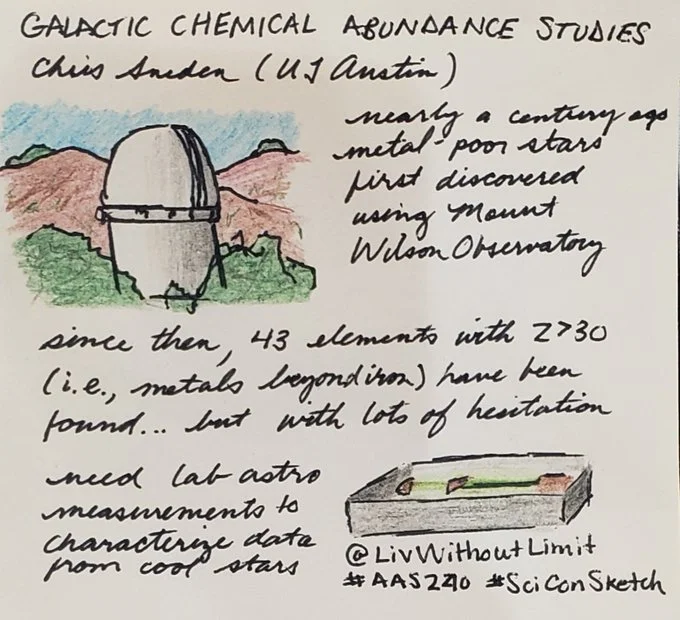 GALACTIC CHEMICAL ABUNDANCE STUDIES
Chris Sneden (UT Austin)
nearly a century ago
metal-poor stars
first discovered
using Mount
Wilson Observatory
since then, 43 elements with Z>30
(i.e., metals beyond iron) have been
found... but with lots of hesitation
need lab astro
measurements to
characterize data
from cool stars
@LivWithoutLimit
#AAS240 #SciConSketch